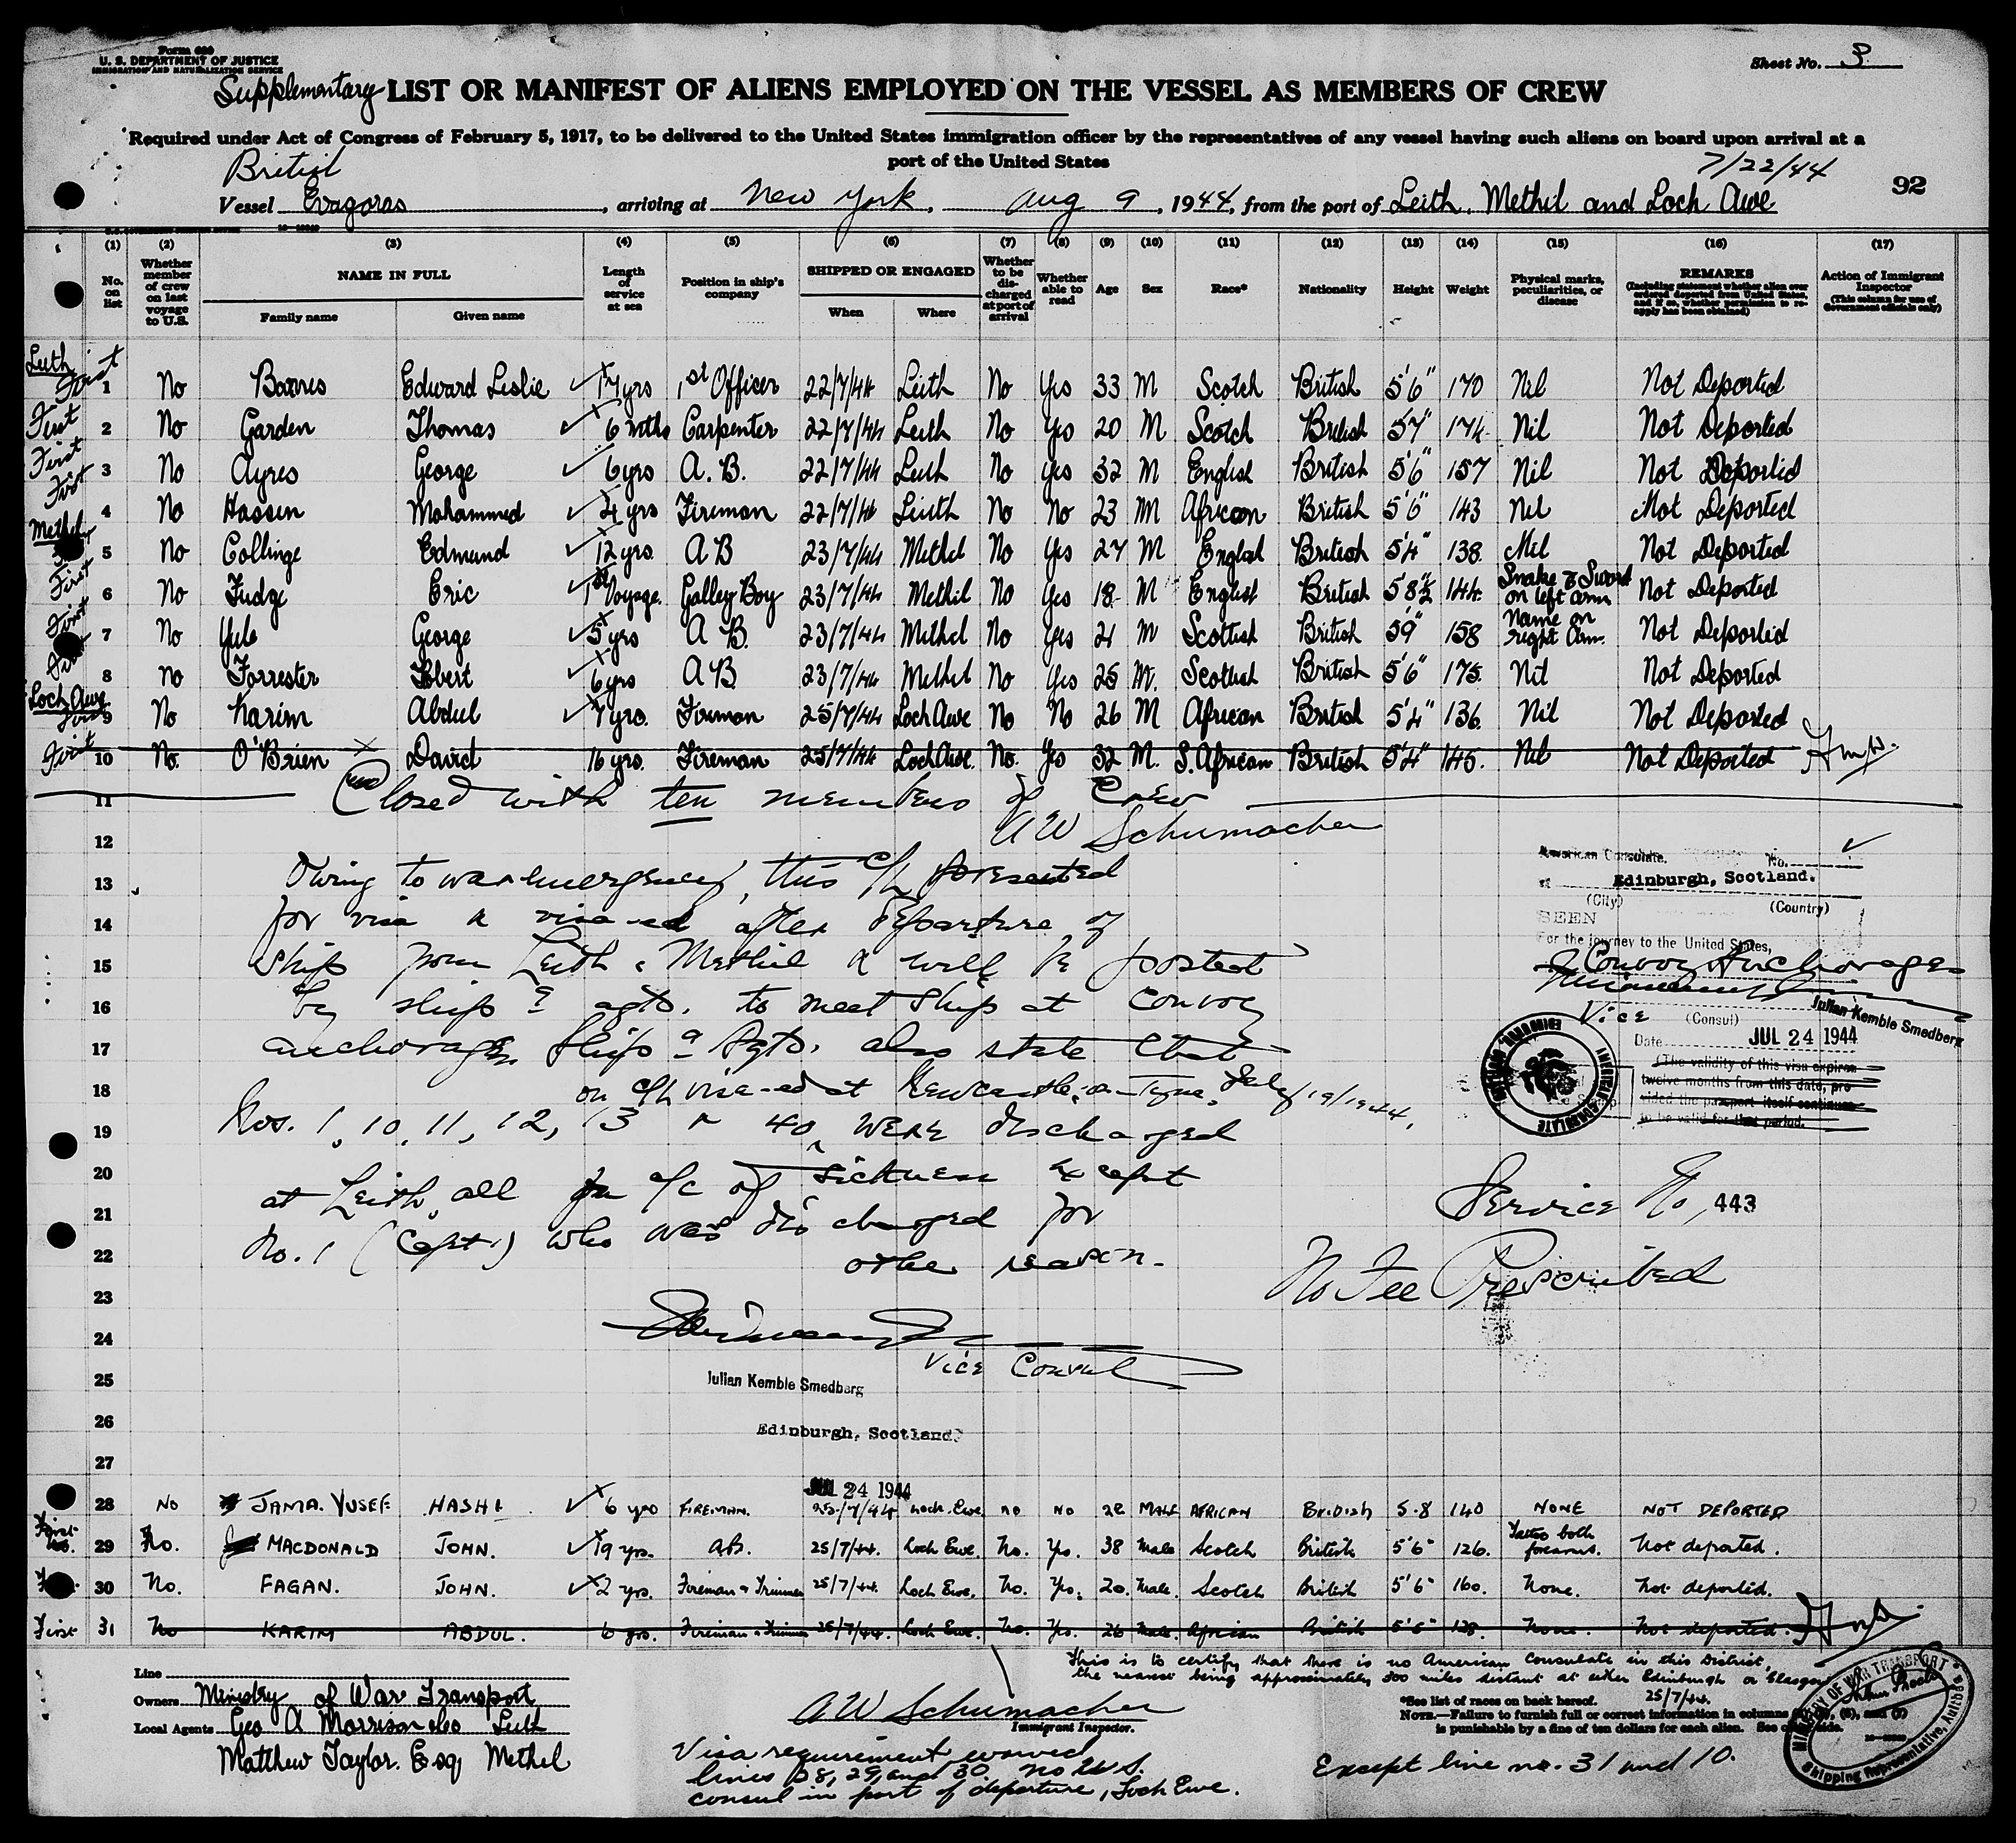 Form 680
U. S. DEPARTMENT OF JUSTICE
IMMIGRATION AND NATURALIZATION SERVICE
Sheet No. 3
Supplementary LIST OR MANIFEST OF ALIENS EMPLOYED ON THE VESSEL AS MEMBERS OF CREW
Required under Act of Congress of February 5, 1917, to be delivered to the United States immigration officer by the representatives of any vessel having such aliens on board upon arrival at a
port of the United States
British
7/22/44
92
Vessel Evagoras, arriving at New York, Aug 9, 1944, from the port of Leith, Methil and Loch Awe
(1) (2) (3) (4) (5) (6) (7) (8) (9) (10) (11) (12) (13) (14) (15) (16) (17)
No. on list
Whether member of crew on last voyage to U.S.
NAME IN FULL
Family name
Given name
Length of service at sea
Position in ship's company
SHIPPED OR ENGAGED
When
Where
Whether to be discharged at port of arrival
Whether able to read
Age
Sex
Race*
Nationality
Height
Weight
Physical marks, peculiarities, or disease
REMARKS
(Including statement whether alien ever ordered deported from United States, and if so, whether permission to reapply has been obtained)
Action of Immigrant Inspector
(This column for use of Government officials only)
Leith
First 1 No Barnes Edward Leslie 17 yrs 1st Officer 22/7/44 Leith No Yes 33 M Scotch British 5'6" 170 Nil Not Deported
First 2 No Garden Thomas 6 mths Carpenter 22/7/44 Leith No Yes 20 M Scotch British 5'7" 174 Nil Not Deported
First 3 No Ayres George 6 yrs A.B. 22/7/44 Leith No Yes 32 M English British 5'6" 157 Nil Not Deported
First 4 No Hassen Mohammed 4 yrs Fireman 22/7/44 Leith No No 23 M African British 5'6" 143 Nil Not Deported
Methil
5 No Collinge Edmund 12 yrs A B 23/7/44 Methil No Yes 27 M English British 5'4" 138 Nil Not Deported
First 6 No Fudge Eric 1st Voyage Galley Boy 23/7/44 Methil No Yes 18 M English British 5'8½ 144 Snake & Sword on left arm Not Deported
First 7 No Yule George 5 yrs A B. 23/7/44 Methil No Yes 21 M Scottish British 5'9" 158 Name on right arm. Not Deported
8 No Forrester Robert 6 yrs A B 23/7/44 Methil No Yes 25 M. Scottish British 5'6" 175 Nil Not Deported
Loch Awe
First 9 No Karim Abdul 7 yrs. Fireman 25/7/44 Loch Awe No No 26 M African British 5'4" 136 Nil Not Deported
First 10 No. O'Brien David 16 yrs. Fireman 25/7/44 Loch Awe. No. Yes 32 M. S. African British 5'4" 145. Nil Not Deported
11 Closed with ten members of Crew
A W Schumacher
12
13 Owing to war emergency, this c/l presented
14 for visa & visa-ed after departure of
15 ship from Leith & Methil & will be posted
16 by ship's agts. to meet ship at convoy
17 anchorage. Ship's Agts. also state that
18 on c/l visa-ed at Newcastle-on-Tyne, July 19/1944,
19 Nos. 1, 10, 11, 12, 13 & 40 were discharged
20 at Leith, all for a/c of sickness except
21
22 No. 1 (Capt.) who was discharged for
other reason.
23
24
Vice Consul
25 Julian Kemble Smedberg
26 Edinburgh, Scotland
27
American Consulate. No.
at Edinburgh, Scotland.
(City) (Country)
SEEN
For the journey to the United States,
Convoy Anchorage
Julian Kemble Smedberg
Vice (Consul)
Date JUL 24 1944
(The validity of this visa expires
twelve months from this date, provided the passport itself continues
to be valid for that period.
AMERICAN CONSULATE EDINBURGH, SCOTLAND
Service No, 443
No Fee Prescribed
JUL 24 1944
28 No JAMA. YUSEF HASHI 6 yrs FIREMAN. 25/7/44 Loch Ewe no NO 22 MALE AFRICAN British 5.8 140 NONE NOT DEPORTED
First 29 No. MACDONALD JOHN. 19 yrs. a.b. 25/7/44. Loch Ewe. No. Yes. 38 Male Scotch British 5'6" 126. Tattoo both forearms. Not deported.
30 No. FAGAN. JOHN. 2 yrs. Fireman & Trimmer 25/7/44. Loch Ewe. No. Yes. 20. Male. Scotch British 5'6" 160. None. Not deported.
First 31 No KARIM ABDUL. 6 yrs. Fireman & Trimmer 25/7/44. Loch Ewe. No. Yes. 26 Male. African British 5'5" 138. None. Not deported.
This is to certify that there is no American Consulate in this District,
the nearest being approximately 300 miles distant at either Edinburgh or Glasgow
25/7/44.
Line
Owners Ministry of War Transport
Local Agents Geo A Morrison &Co Leith
Matthew Taylor. Esq Methil
A W Schumacher
Immigrant Inspector.
*See list of races on back hereof.
NOTE.—Failure to furnish full or correct information in columns
is punishable by a fine of ten dollars for each alien. See other side.
MINISTRY OF WAR TRANSPORT
Shipping Representative,
Visa requirement waived
lines 28, 29, and 30. no U.S.
consul in port of departure, Loch Ewe.
Except line no. 31 and 10.